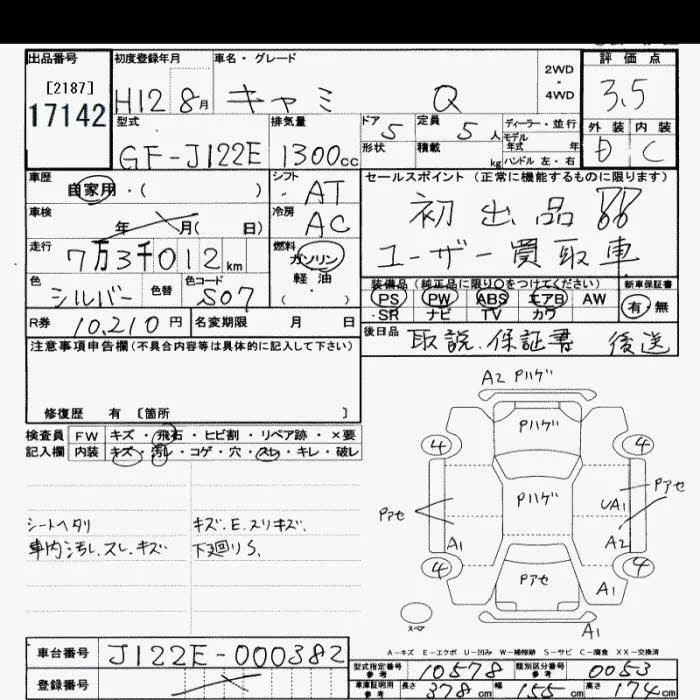 出品番号 初度登録年月 車名・グレード 評価点
[2187]
17142
H12 8月 キャミ Q 2WD・4WD 3.5
型式 排気量 ドア 5 定員 5人 ディーラー・並行 外装 内装
GF-J122E 1300cc 形状 積載 kg モデル年式 年 ハンドル 左・右 D C
車歴 シフト セールスポイント(正常に機能するものに限ります)
自家用・( ) AT
車検 冷房 初出品
年 月( 日) AC
走行 燃料 ユーザー買取車
7万3千012km ガソリン
軽油
( )
色 色替 色コード 装備品(純正品に限り○をつけてください) 新車保証書
シルバー S07 PS PW ABS エアB AW 有・無
SR ナビ TV カワ
R券 10,210円 名変期限 月 日 後日品 取説.保証書 後送
注意事項申告欄(不具合内容等は具体的に記入して下さい)
修復歴 有 [箇所 ]
検査員 FW キズ・飛石・ヒビ割・リペア跡・×要
記入欄 内装 キズ・汚レ・コゲ・穴・スレ・キレ・破レ
シートヘタリ キズ.E.スリキズ.
車内汚し.スレ.キズ 下廻りS.
A2 Pハゲ
Pハゲ
4 4
Pハゲ
Pアセ UA1 Pアセ
A1 A2
4 4
Pアセ A1
スペア A1
A-キズ E-エクボ U-凹み W-補修跡 S-サビ C-腐食 XX-交換済
車台番号 J122E-000382
登録番号
型式指定番号 参考 10578 類別区分番号 参考 0053
車庫証明用 参考 長さ 378cm 幅 155cm 高さ 174cm